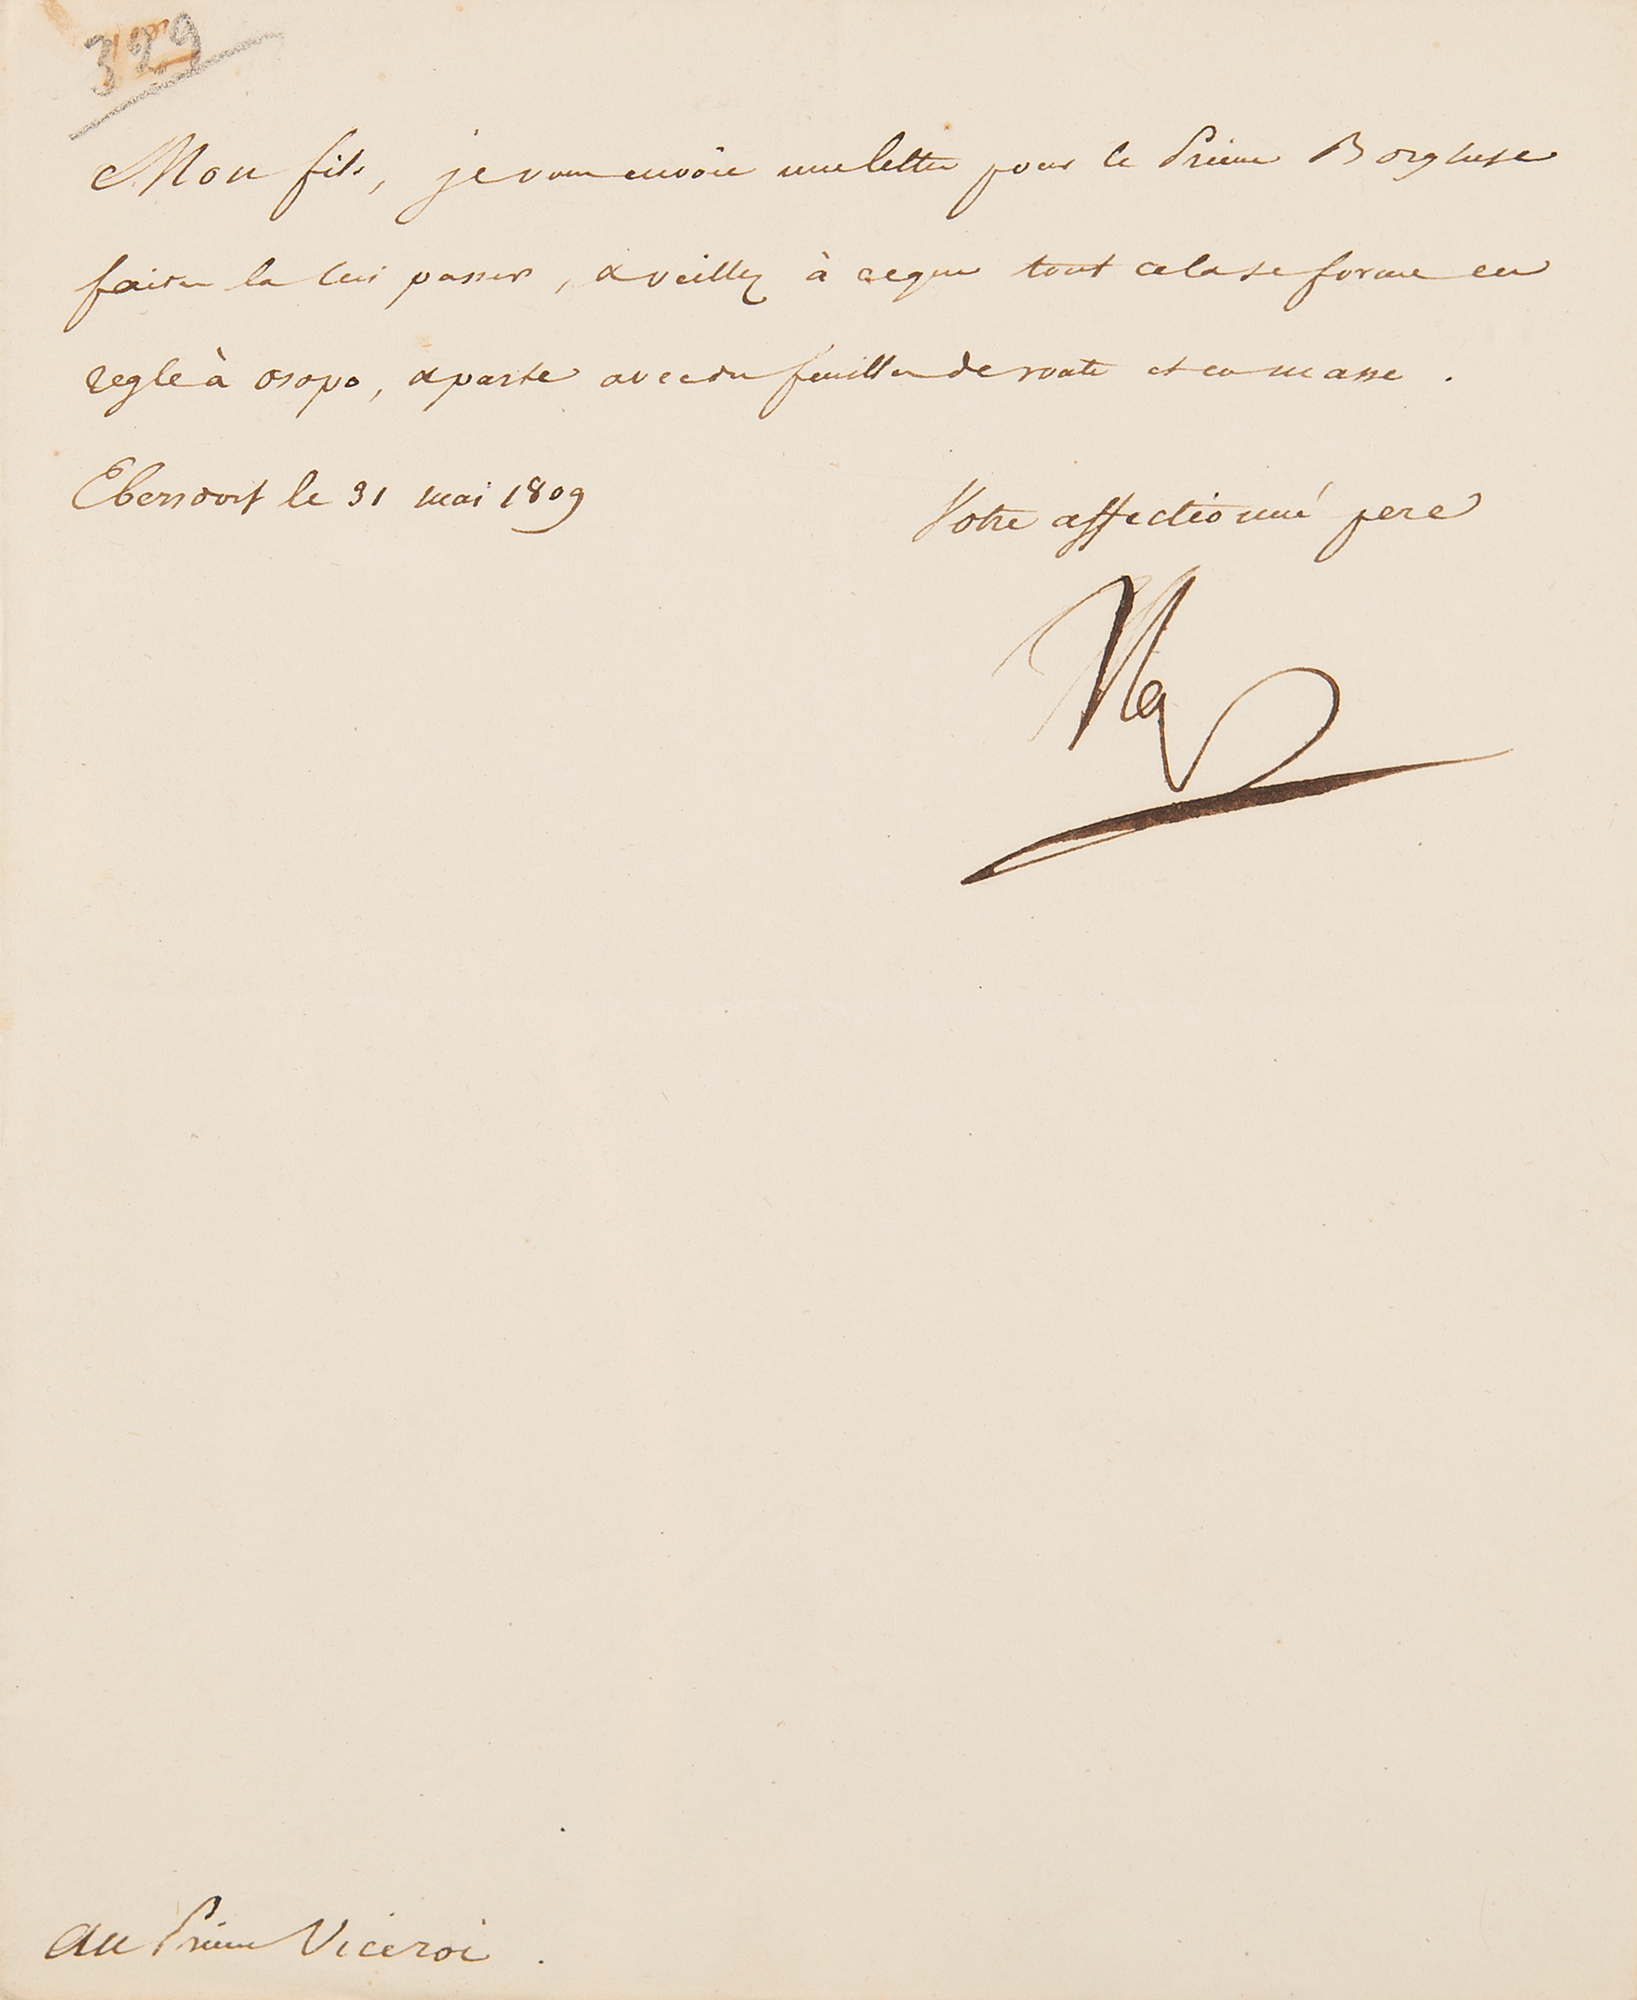 329
Mon fils, je vous envoie une lettre pour le Prince Borghese
faites la lui passer, & veillez à ce que tout cela se forme en
regle à osopo, & parte avec des feuilles de route et en masse.
Ebersdorf le 31 mai 1809
Votre affectionné pere
Nap
au Prince Viceroi.